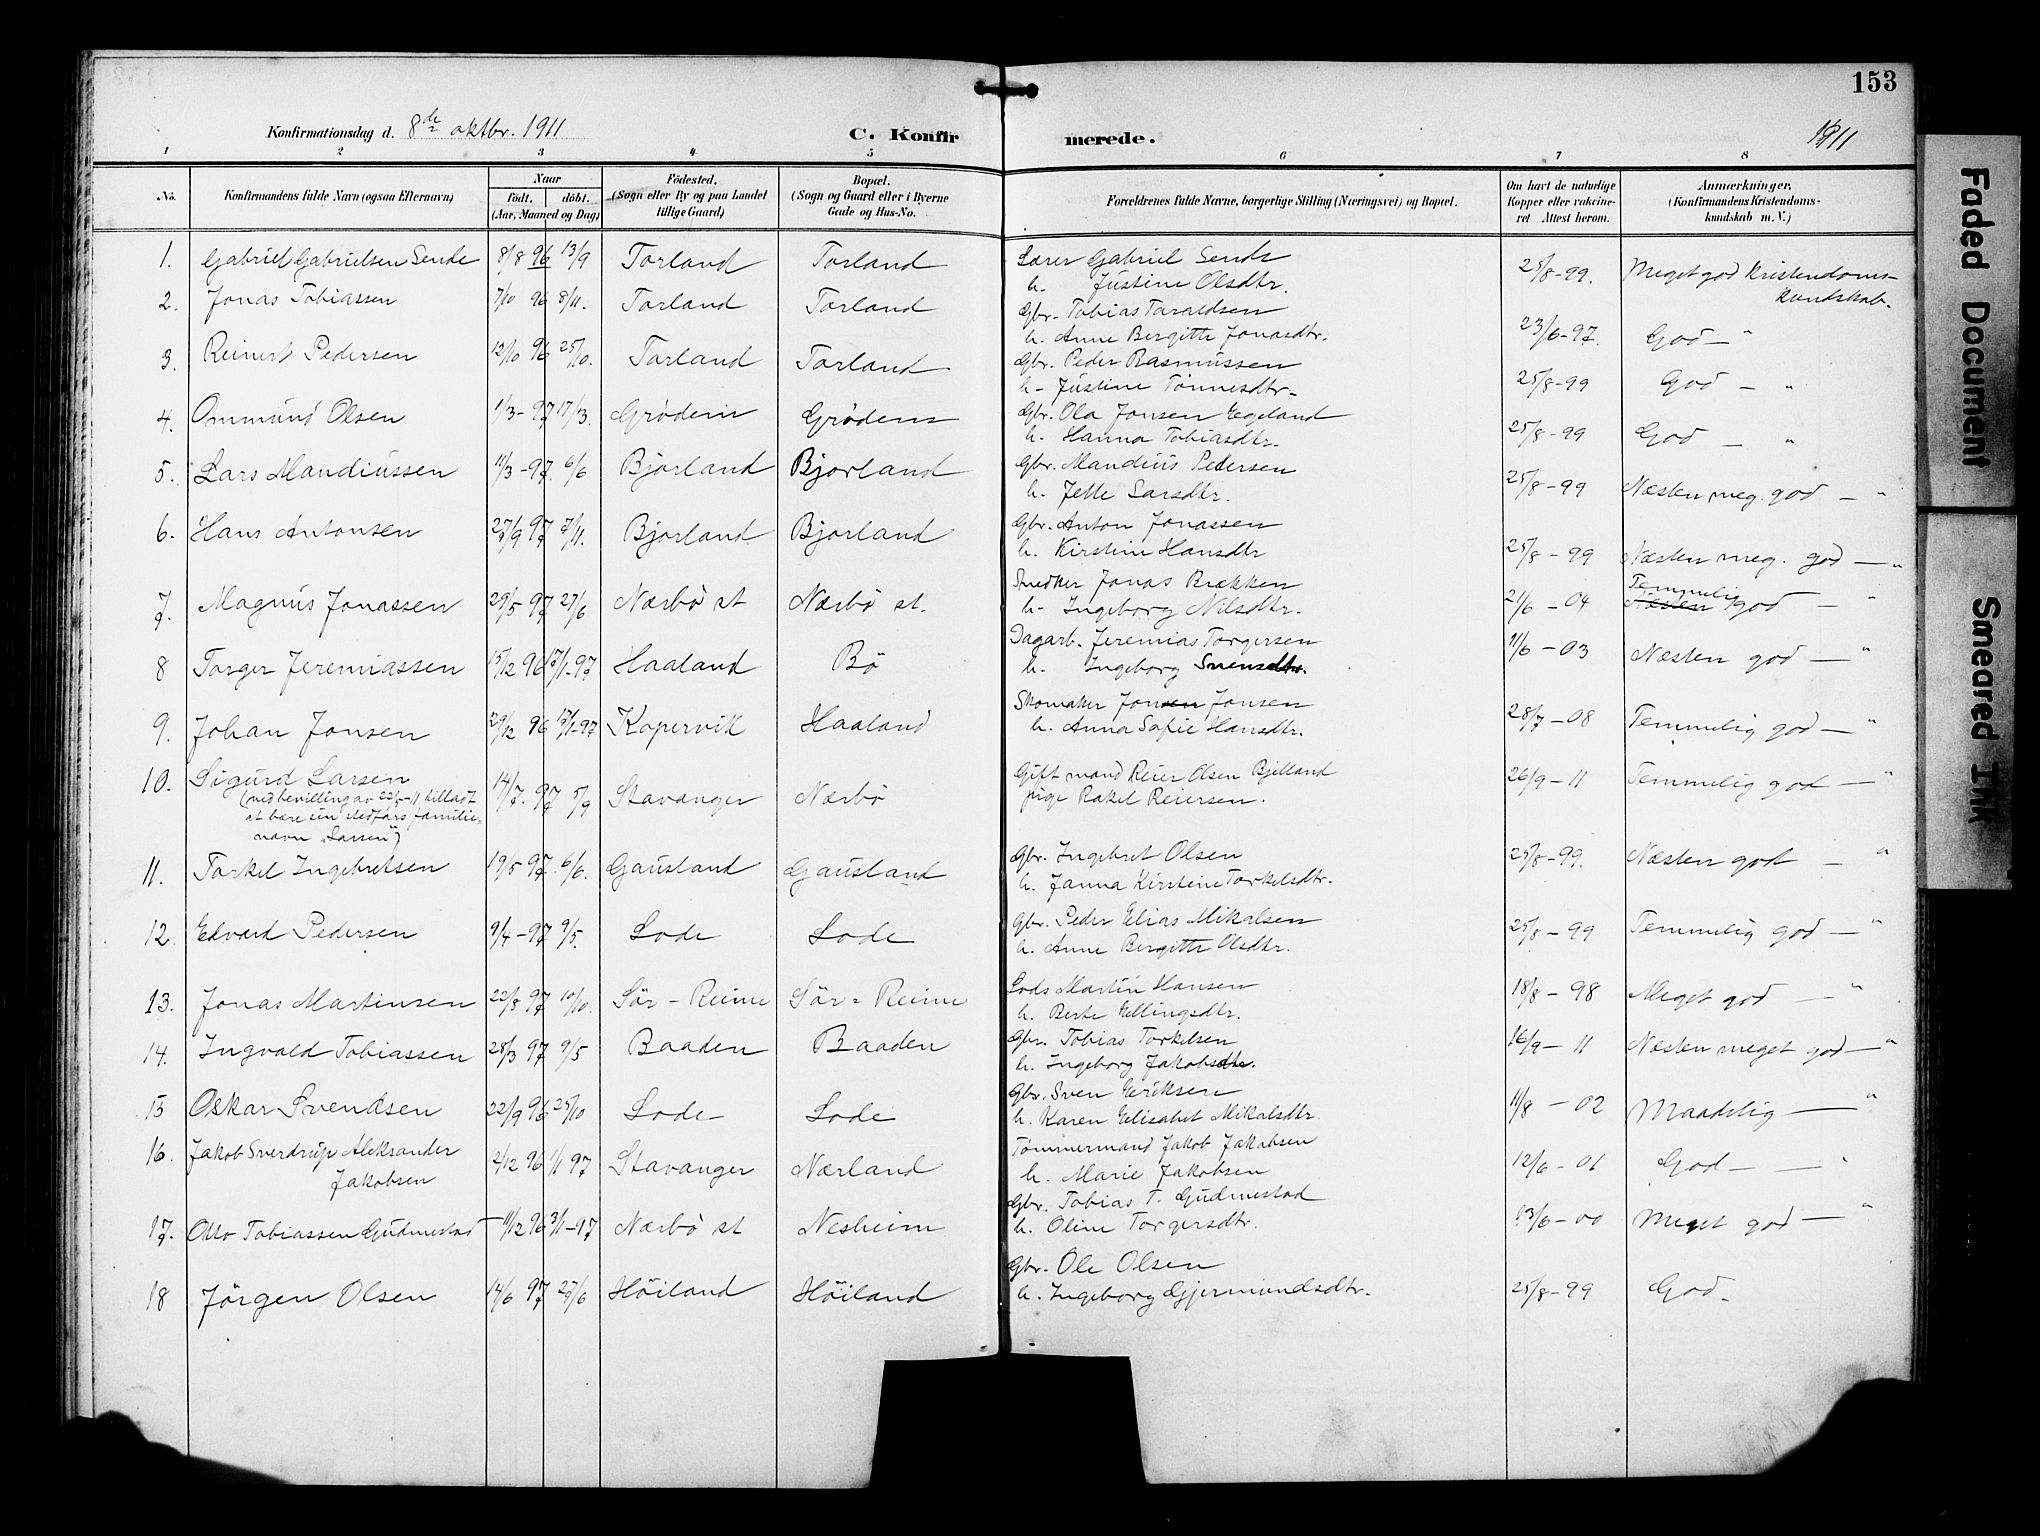 153
Konfirmationsdag d. 8de oktbr. 1911
C. Konfir
merede.
1911
1 2 3 4 5 6 7 8
No.
Konfirmandens fulde Navn (ogsaa Efternavn)
Naar
født. døbt.
(Aar, Maaned og Dag)
Fødested.
(Sogn eller By og paa Landet
tillige Gaard)
Bopæl.
(Sogn og Gaard eller i Byerne
Gade og Hus-No.
Forældrenes fulde Navne, borgerlige Stilling (Næringsvei) og Bopæl.
Om havt de naturlige
Kopper eller vakcine-
ret Attest herom.
Anmærkninger.
(Konfirmandens Kristendoms-
kundskab m. V.)
1. Gabriel Gabrielsen Sende 8/8 96 13/9 Torland Torland
Lærer Gabriel Sende
h. Justine Olsdtr.
25/8-99. Meget god Kristendoms-
kundskab.
2. Jonas Tobiassen 7/10 96 8/11. Torland Torland
Gbr. Tobias Taraldsen
h. Anne Bergitte Jonasdtr.
23/6-97. God — "
3. Reinert Pedersen 12/10 96 25/10. Torland Torland
Gbr. Peder Rasmussen
h- Justine Tønnesdtr-
25/8-99 God — "
4. Ommund Olsen 1/3-97 17/3. Grødem Grødem
Gbr. Ola Jonsen Egeland
h. Hanna Tobiasdtr.
25/8-99 God — "
5. Lars Mandiussen 11/3-97. 6/6 Bjorland Bjorland
Gbr. Mandius Petersen
h. Jette Larsdtr.
25/8-99 Næsten meg. god — "
6. Hans Antonsen 27/9 97 7/11. Bjorland Bjorland
Gbr. Anton Jonassen
h. Kirstine Hansdtr
25/8-99 Næsten meg. god — "
7. Magnus Jonassen 29/5-97 27/6 Nærbø st Nærbø st.
Snedker Jonas Brækken
h- Ingeborg Nilsdtr.
21/6-04 Temmelig
Næsten god — "
8 Torger Jeremiassen 15/12 96 17/1-97 Haaland Bø
Dagarb. Jeremias Torgersen
h. Ingeborg Svensdtr.
11/6-03 Næsten god — "
9. Johan Jonsen 29/12 96 17/1-97 Kopervik Haaland
Skomaker Jonsen Jonsen
h. Anna Sofie Hansdtr.
28/7-08 Temmelig god — "
10. Sigurd Larsen 14/7. 97 5/9 Stavanger Nærbø
(ved bevilling av 22/5-11 tilladt
at bære sin stedfars familie-
navn "Larsen")
Gift mand Reier Olsen Bjelland
pige Rakel Reiersen.
26/9-11 Temmelig god — "
11. Torkel Ingebretsen 19/5-97. 6/6. Gausland Gausland
Gbr. Ingebret Olsen
h. Janna Kirstine Torkelsdtr.
25/8-99. Næsten god — "
12. Edvard Pedersen 9/4-97 9/5. Lode Lode
Gbr. Peder Elias Mikalsen
h. Anne Bergitte Olsdtr.
25/8-99 Temmelig god — "
13. Jonas Martinsen 22/8 97 10/10. Sør-Reime Sør=Reime
Lods Martin Hansen
h. Berte Ellingsdtr.
18/8-98 Meget god — "
14. Ingvald Tobiassen 28/3 97 9/5 Baaden Baaden
Gbr. Tobias Torkelsen
h. Ingeborg Jakobsdtr.
16/9-11 Næsten meget god — "
15 Oskar Svendsen 22/9 96 25/10 Lode- Lode
Gbr. Sven Eriksen
h. Karen Elisabet Mikalsdtr.
11/8-02 Maadelig — "
16. Jakob Sverdrup Aleksander
Jakobsen 2/12 96 1/1 97 Stavanger Nærland
Tømmermand Jakob Jakobsen
h. Marie Jakobsen
12/6-01 God — "
17. Otto Tobiassen Gudmestad 11/12 96 3/1-97 Nærbø st Nesheim
Gbr. Tobias T. Gudmestad
h. Oline Torgersdtr.
13/6-00 Meget god — "
18 Jørgen Olsen 14/6 97 27/6 Høiland Høiland
Gbr. Ole Olsen
h. Ingeborg Gjermundsdtr.
25/8-99 God.
Faded Document
Smeared Ink